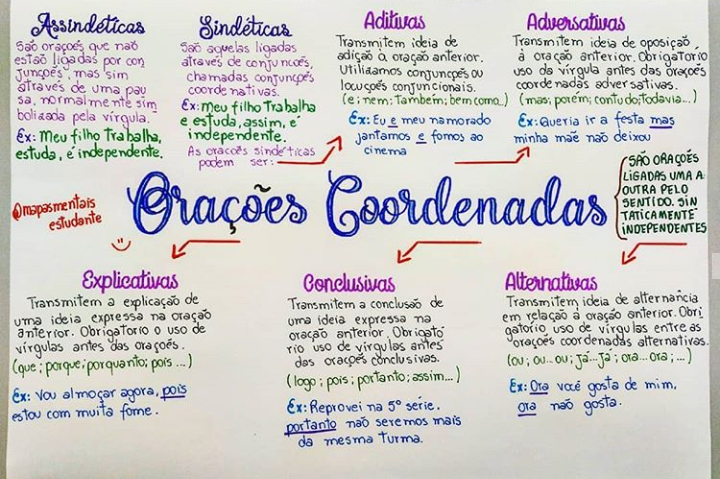 Assindéticas
São orações que não
estão ligadas por con
junções, mas sim
através de uma pau
sa, normalmente sim
bolizada pela vírgula.
Ex: Meu filho Trabalha,
estuda, é independente.
Sindéticas
São aquelas ligadas
através de conjuncoẽs,
chamadas conjunções
coordenativas.
Ex: Meu filho Trabalha
e estuda, assim, é
independente.
As oracoẽs sindéticas
podem ser:
Aditivas
Transmitem ideia de
adição à oração anterior.
Utilizamos conjunções ou
locuções conjuncionais.
(e; nem; Também; bem como...)
Ex: Eu e meu namorado
jantamos e fomos ao
cinema
Adversativas
Transmitem ideia de oposição
à oração anterior. Obrigatório
uso da vírgula antes das orações
coordenadas adversativas.
(mas; porém; contudo; Todavia...)
Ex: Queria ir a festa mas
minha mãe não deixou
@mapasmentais
estudante
Orações Coordenadas
SÃO ORAÇÕES
LIGADAS UMA A
OUTRA PELO
SENTIDO. SIN
TATICAMENTE
INDEPENDENTES
Explicativas
Transmitem a explicação de
uma ideia expressa na oração
anterior. Obrigatorio o uso de
vírgulas antes das orações.
(que; porque; porquanto; pois ...)
Ex: Vou almoçar agora, pois
estou com muita fome.
Conclusivas
Transmitem a conclusão de
uma ideia expressa na
oração anterior. Obrigató
rio uso de vírgulas antes
das orações conclusivas.
(logo; pois; portanto; assim...)
Ex: Reprovei na 5º série,
portanto não seremos mais
da mesma turma.
Alternativas
Transmitem ideia de alternância
em relação à oração anterior. Obri
gatorio uso de vírgulas entre as
orações coordenadas alternativas.
(ou; ou...ou; já...já; ora...ora;...)
Ex: Ora você gosta de mim,
ora não gosta.